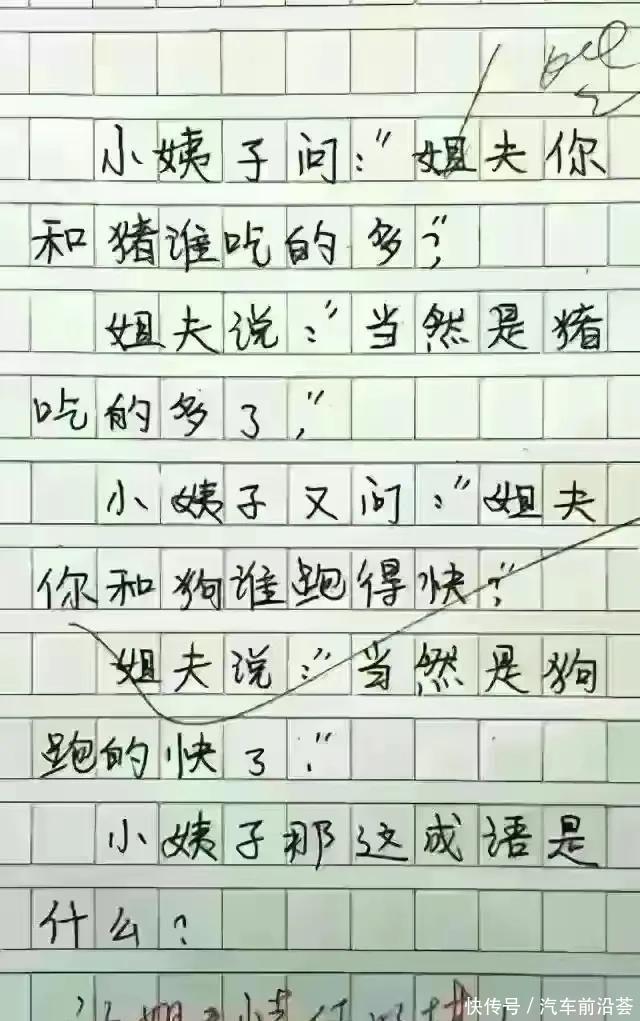 小姨子问:"姐夫你
和猪谁吃的多?"
姐夫说:"当然是猪
吃的多了,"
小姨子又问:"姐夫
你和狗谁跑得快?"
姐夫说:"当然是狗
跑的快了."
小姨子那这成语是
什么?
快传号/汽车前沿荟